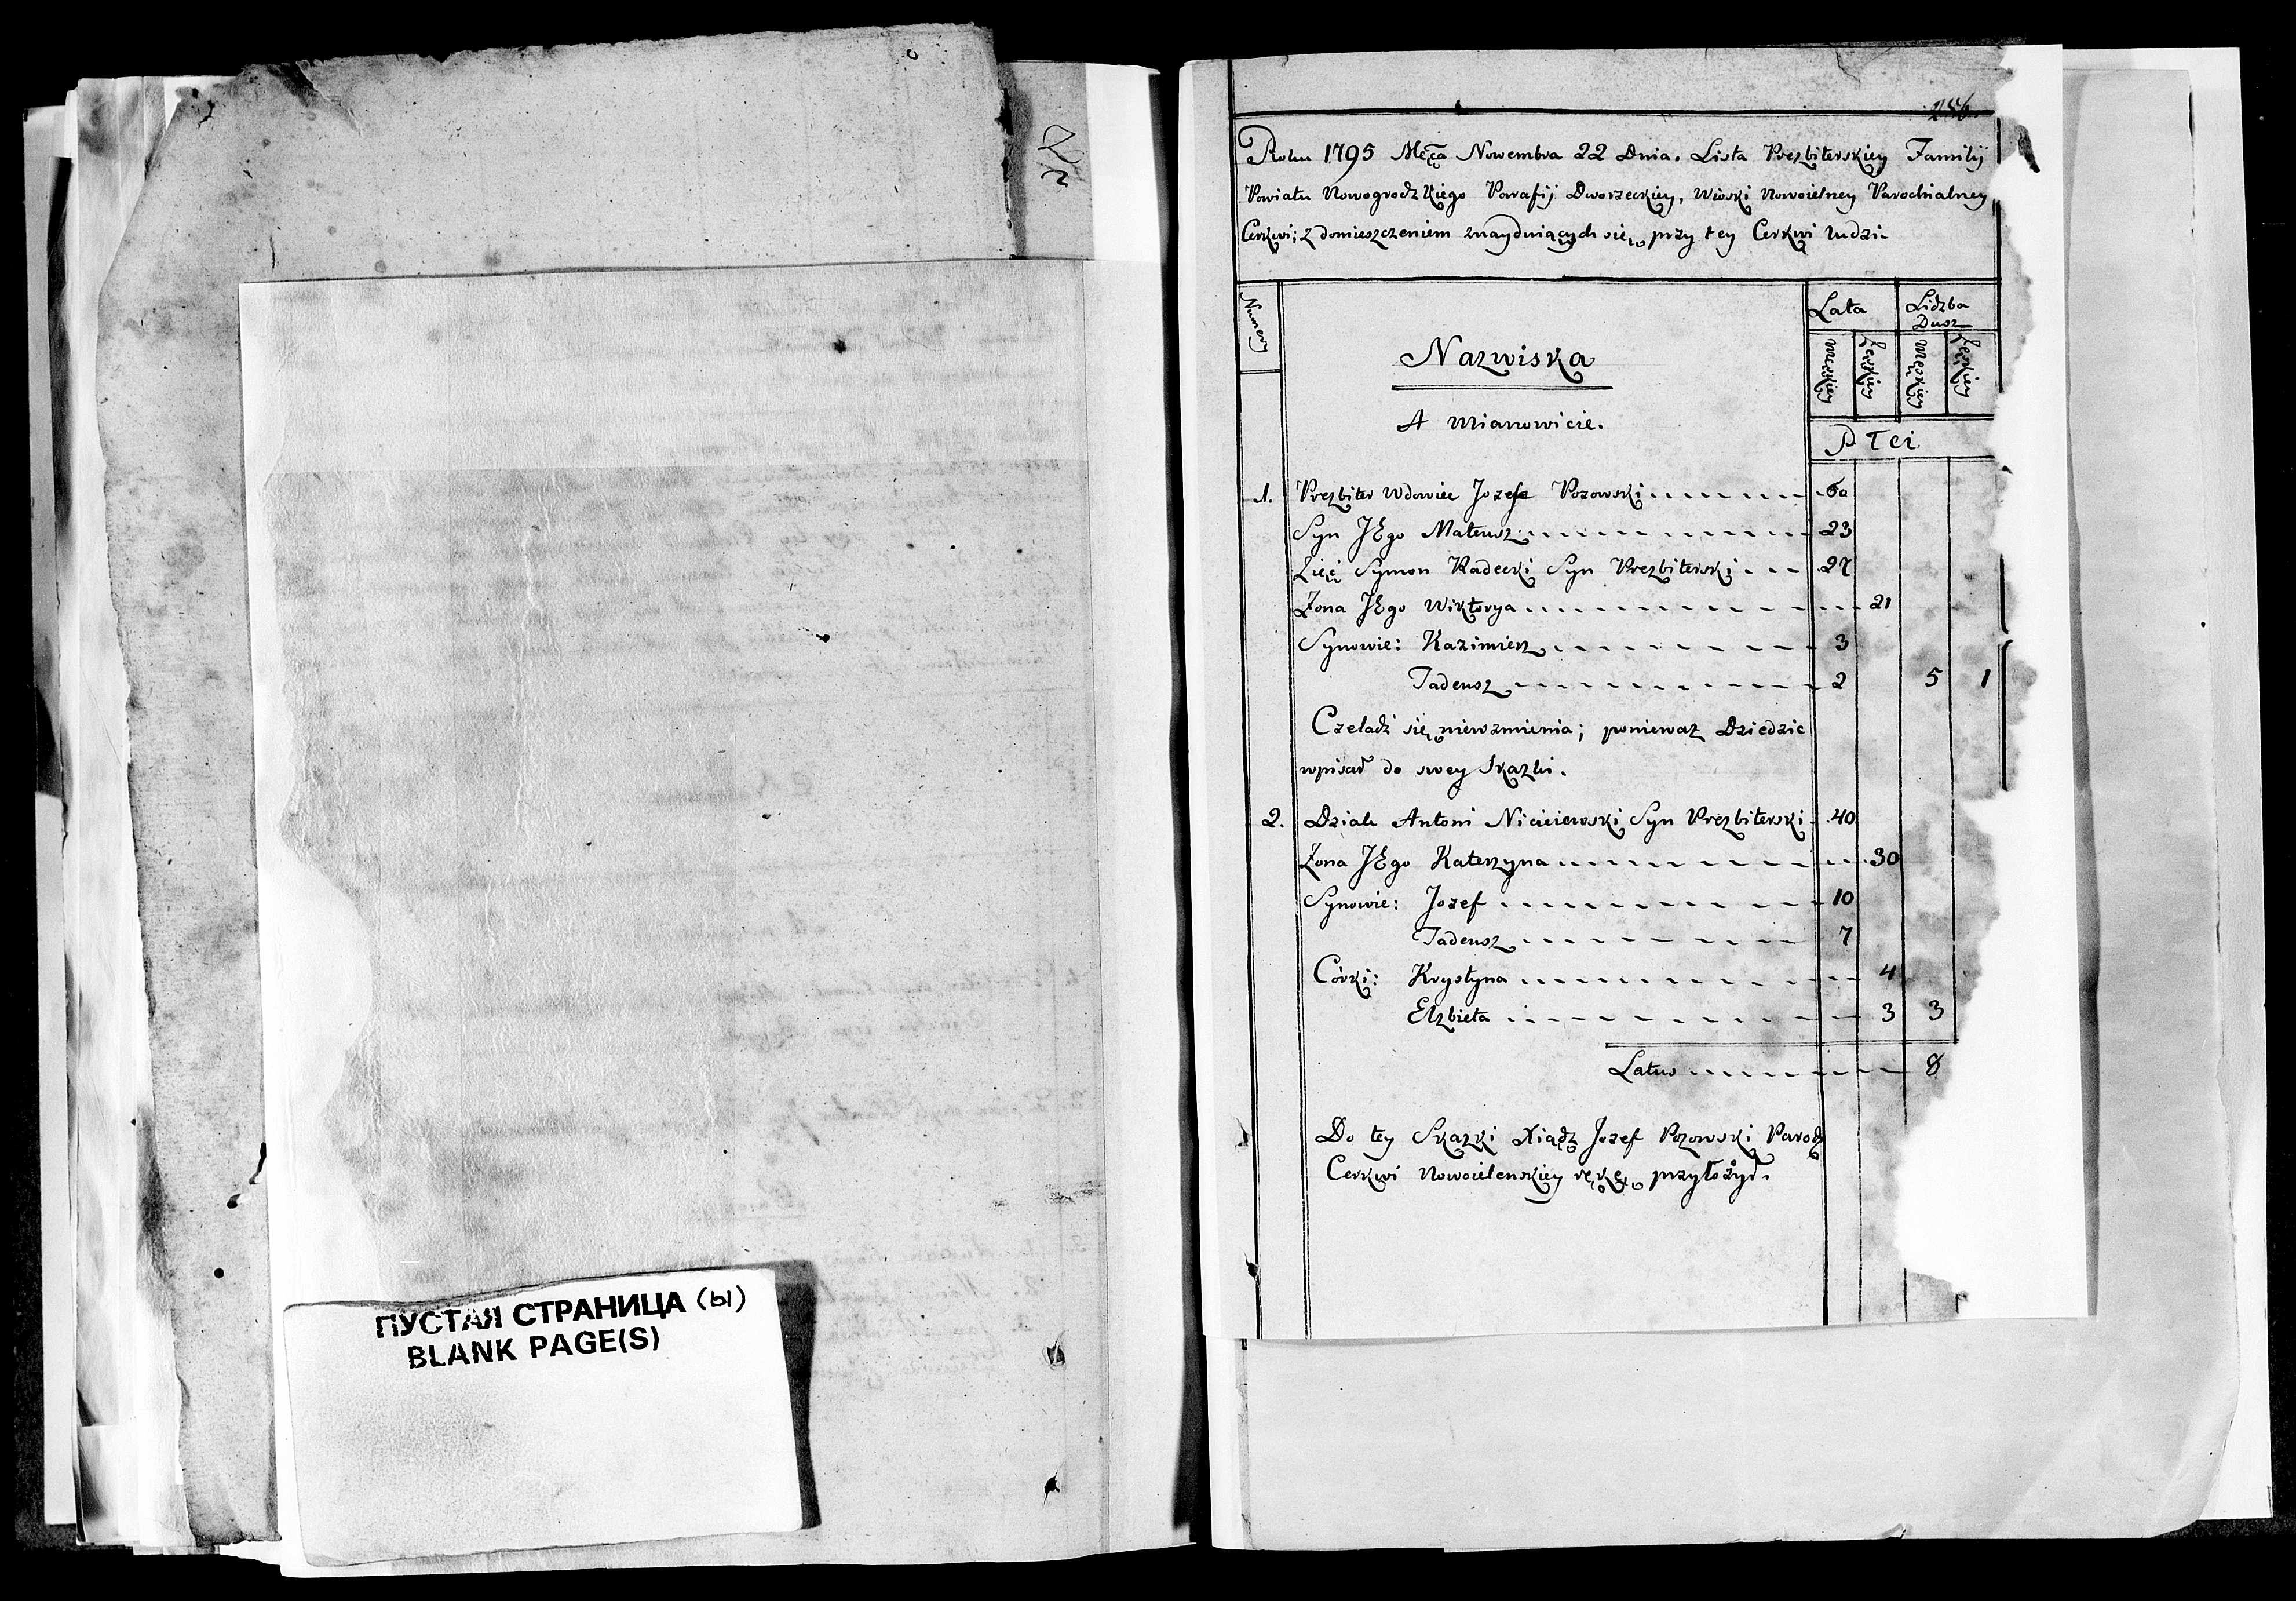 ПУСТАЯ СТРАНИЦА (Ы)
BLANK PAGE(S)
Roku 1795 Mcą Nowembra 22 Dnia. Lista Prezbiterskiey Familij
Powiatu Nowogrodzkiego Parafij Dworzeckiey, Wioski Nowoielney Parochialney
Cerkwi; z domieszczeniem znayduiących się przy tey Cerkwi ludzi.
Numery
Nazwiska
Lata
Lidzba Dusz
męskiey
żeńskiey
męskiey
żeńskiey
A mianowicie.
Płci
1. Prezbiter Wdowiec Jozef Pozowski 60
Syn JEgo Mateusz 23
Zięć Symon Radecki Syn Prezbiterski 27
Żona JEgo Wiktorya 21
Synowie: Kazimierz 3
Tadeusz 2 5 1
Czeladź się niewzmienia; ponieważ Dziedzic
wpisał do swey skazki.
2. Dziak Antoni Syn Prezbiterski 40
Żona JEgo Katerzyna 30
Synowie: Jozef 10
Tadeusz 7
Córki: Krystyna 4
Elzbieta 3 3
Latus 8
Do tey Skazki Xiądz Jozef Pozowski Paroch
Cerkwi Nowoielenskiey rękę przyłożył.